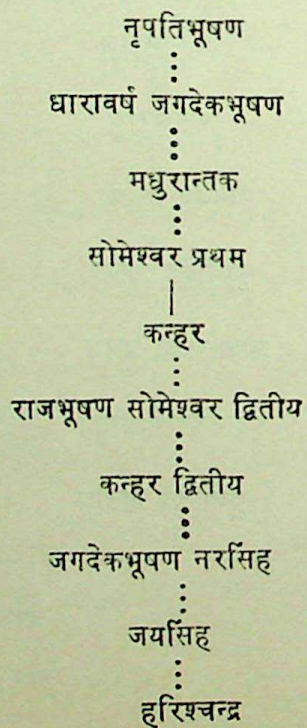 नृपतिभूषण
धारावर्ष जगदेकभूषण
मधुरान्तक
सोमेश्वर प्रथम
कन्हर
राजभूषण सोमेश्वर द्वितीय
कन्हर द्वितीय
जगदेकभूषण नरसिंह
जयसिंह
हरिश्चन्द्र